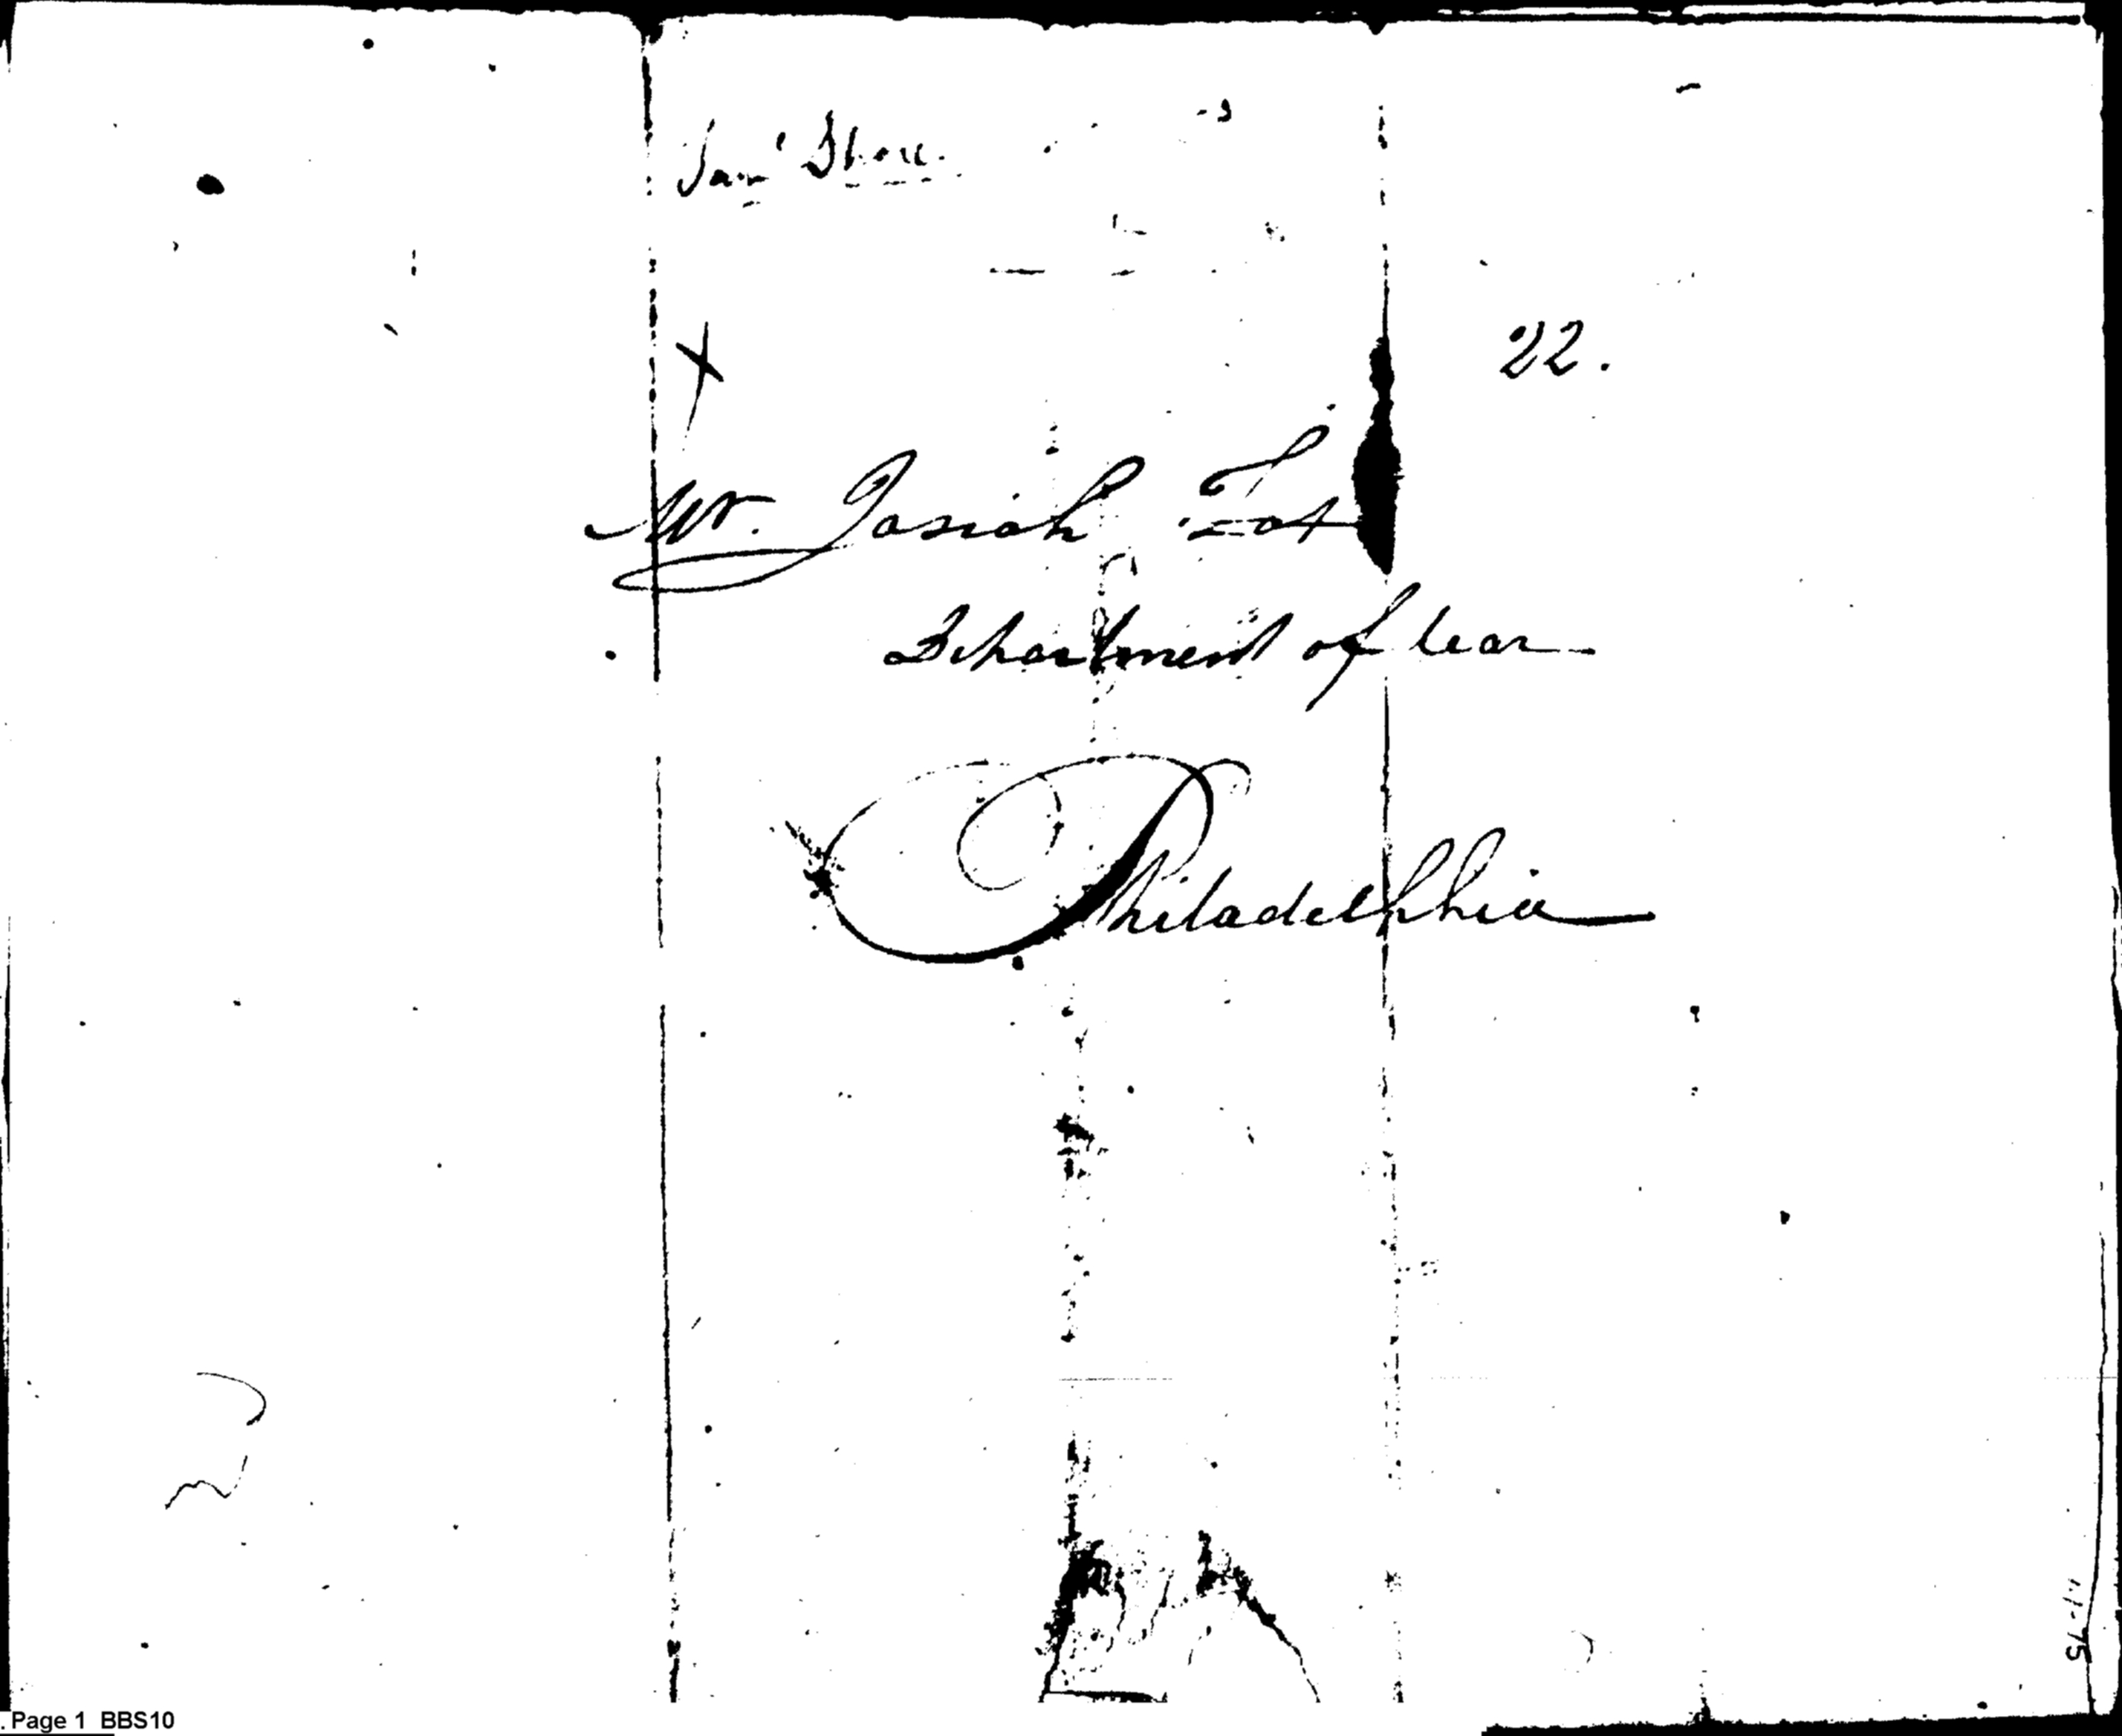 22.
Mr. Josiah Fox
Department of War
Philadelphia
Page 1 BBS10